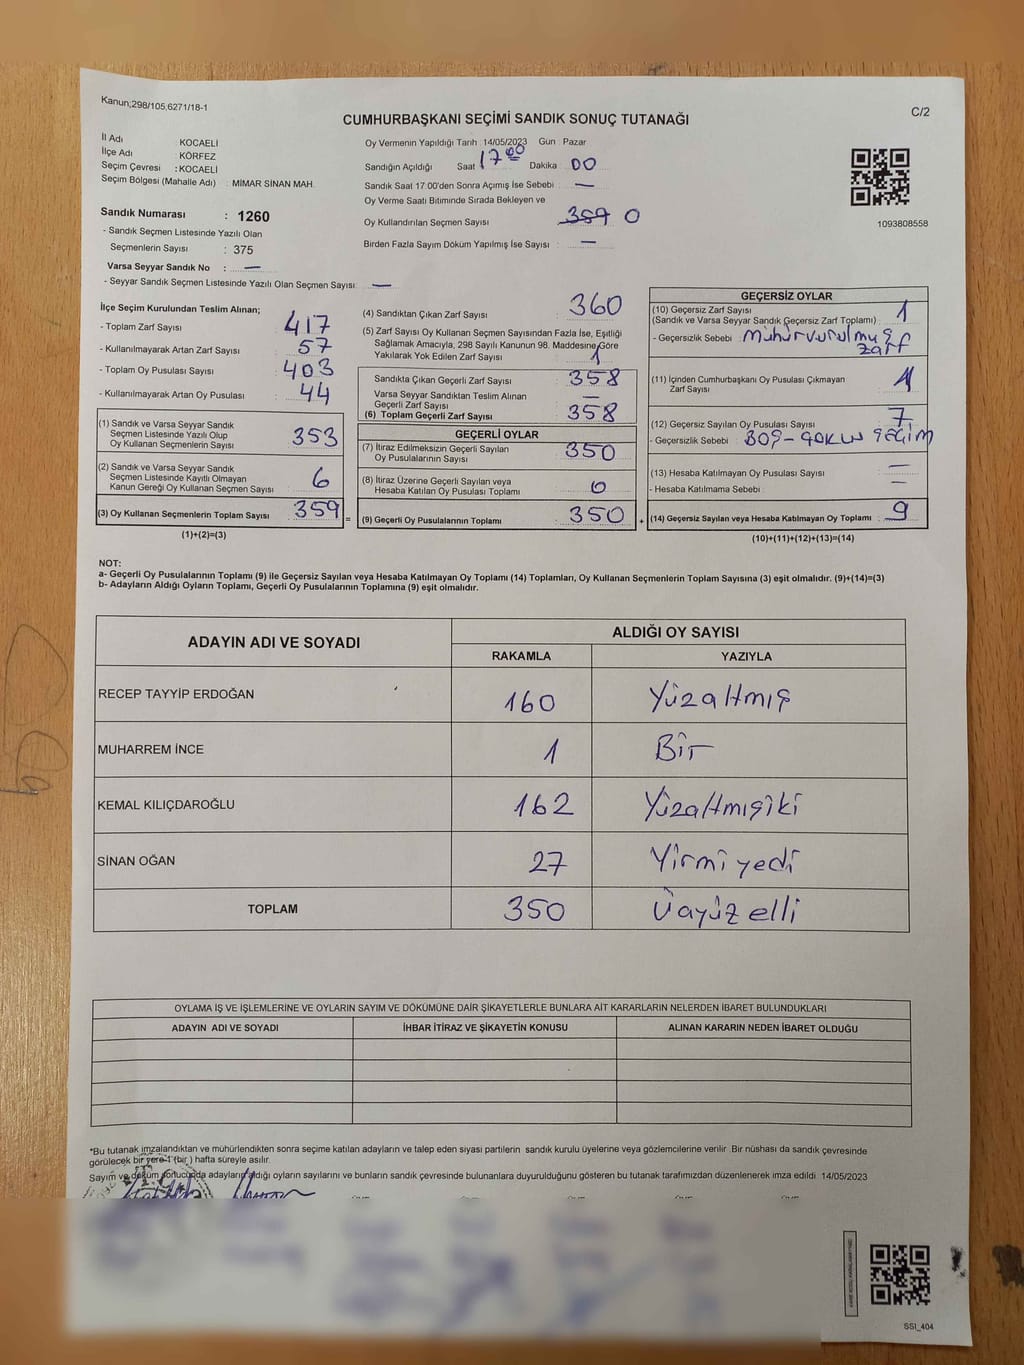 Kanun;298/105,6271/18-1
C/2
CUMHURBAŞKANI SEÇİMİ SANDIK SONUÇ TUTANAĞI
İl Adı : KOCAELİ
İlçe Adı : KÖRFEZ
Seçim Çevresi : KOCAELİ
Seçim Bölgesi (Mahalle Adı) : MİMAR SİNAN MAH.
Sandık Numarası : 1260
- Sandık Seçmen Listesinde Yazılı Olan
Seçmenlerin Sayısı : 375
Varsa Seyyar Sandık No : —
- Seyyar Sandık Seçmen Listesinde Yazılı Olan Seçmen Sayısı: —
Oy Vermenin Yapıldığı Tarih 14/05/2023 Gün : Pazar
Sandığın Açıldığı Saat 17 00 Dakika : 00
Sandık Saat 17.00'den Sonra Açımış İse Sebebi : —
Oy Verme Saati Bitiminde Sırada Bekleyen ve
Oy Kullandırılan Seçmen Sayısı : 359 0
Birden Fazla Sayım Döküm Yapılmış İse Sayısı : —
1093808558
İlçe Seçim Kurulundan Teslim Alınan;
- Toplam Zarf Sayısı : 417
- Kullanılmayarak Artan Zarf Sayısı : 57
- Toplam Oy Pusulası Sayısı : 403
- Kullanılmayarak Artan Oy Pusulası : 44
(1) Sandık ve Varsa Seyyar Sandık
Seçmen Listesinde Yazılı Olup
Oy Kullanan Seçmenlerin Sayısı : 353
(2) Sandık ve Varsa Seyyar Sandık
Seçmen Listesinde Kayıtlı Olmayan
Kanun Gereği Oy Kullanan Seçmen Sayısı : 6
(3) Oy Kullanan Seçmenlerin Toplam Sayısı : 359 =
(1)+(2)=(3)
(4) Sandıktan Çıkan Zarf Sayısı : 360
(5) Zarf Sayısı Oy Kullanan Seçmen Sayısından Fazla İse, Eşitliği
Sağlamak Amacıyla, 298 Sayılı Kanunun 98. Maddesine Göre
Yakılarak Yok Edilen Zarf Sayısı : 1
Sandıkta Çıkan Geçerli Zarf Sayısı : 358
Varsa Seyyar Sandıktan Teslim Alınan
Geçerli Zarf Sayısı : —
(6) Toplam Geçerli Zarf Sayısı : 358
GEÇERLİ OYLAR
(7) İtiraz Edilmeksizin Geçerli Sayılan
Oy Pusulalarının Sayısı : 350
(8) İtiraz Üzerine Geçerli Sayılan veya
Hesaba Katılan Oy Pusulası Toplamı : 0
(9) Geçerli Oy Pusulalarının Toplamı : 350 +
GEÇERSİZ OYLAR
(10) Geçersiz Zarf Sayısı
(Sandık ve Varsa Seyyar Sandık Geçersiz Zarf Toplamı) : 1
- Geçersizlik Sebebi : Mühürvurulmuş
zarf
(11) İçinden Cumhurbaşkanı Oy Pusulası Çıkmayan
Zarf Sayısı : 1
(12) Geçersiz Sayılan Oy Pusulası Sayısı : 7
- Geçersizlik Sebebi : BOŞ-ÇOKLU SEÇİM
(13) Hesaba Katılmayan Oy Pusulası Sayısı : —
- Hesaba Katılmama Sebebi : —
(14) Geçersiz Sayılan veya Hesaba Katılmayan Oy Toplamı : 9
(10)+(11)+(12)+(13)=(14)
NOT:
a- Geçerli Oy Pusulalarının Toplamı (9) ile Geçersiz Sayılan veya Hesaba Katılmayan Oy Toplamı (14) Toplamları, Oy Kullanan Seçmenlerin Toplam Sayısına (3) eşit olmalıdır. (9)+(14)=(3)
b- Adayların Aldığı Oyların Toplamı, Geçerli Oy Pusulalarının Toplamına (9) eşit olmalıdır.
ADAYIN ADI VE SOYADI
ALDIĞI OY SAYISI
RAKAMLA YAZIYLA
RECEP TAYYİP ERDOĞAN 160 Yüzaltmış
MUHARREM İNCE 1 Bir
KEMAL KILIÇDAROĞLU 162 Yüzaltmışiki
SİNAN OĞAN 27 Yirmi yedi
TOPLAM 350 Üçyüz elli
OYLAMA İŞ VE İŞLEMLERİNE VE OYLARIN SAYIM VE DÖKÜMÜNE DAİR ŞİKAYETLERLE BUNLARA AİT KARARLARIN NELERDEN İBARET BULUNDUKLARI
ADAYIN ADI VE SOYADI İHBAR İTİRAZ VE ŞİKAYETİN KONUSU ALINAN KARARIN NEDEN İBARET OLDUĞU
*Bu tutanak imzalandıktan ve mühürlendikten sonra seçime katılan adayların ve talep eden siyasi partilerin sandık kurulu üyelerine veya gözlemcilerine verilir. Bir nüshası da sandık çevresinde
görülecek bir yere 1 (bir ) hafta süreyle asılır.
Sayım ve döküm sonucunda adayların aldığı oyların sayılarını ve bunların sandık çevresinde bulunanlara duyurulduğunu gösteren bu tutanak tarafımızdan düzenlenerek imza edildi 14/05/2023
T.C.
SSI_404